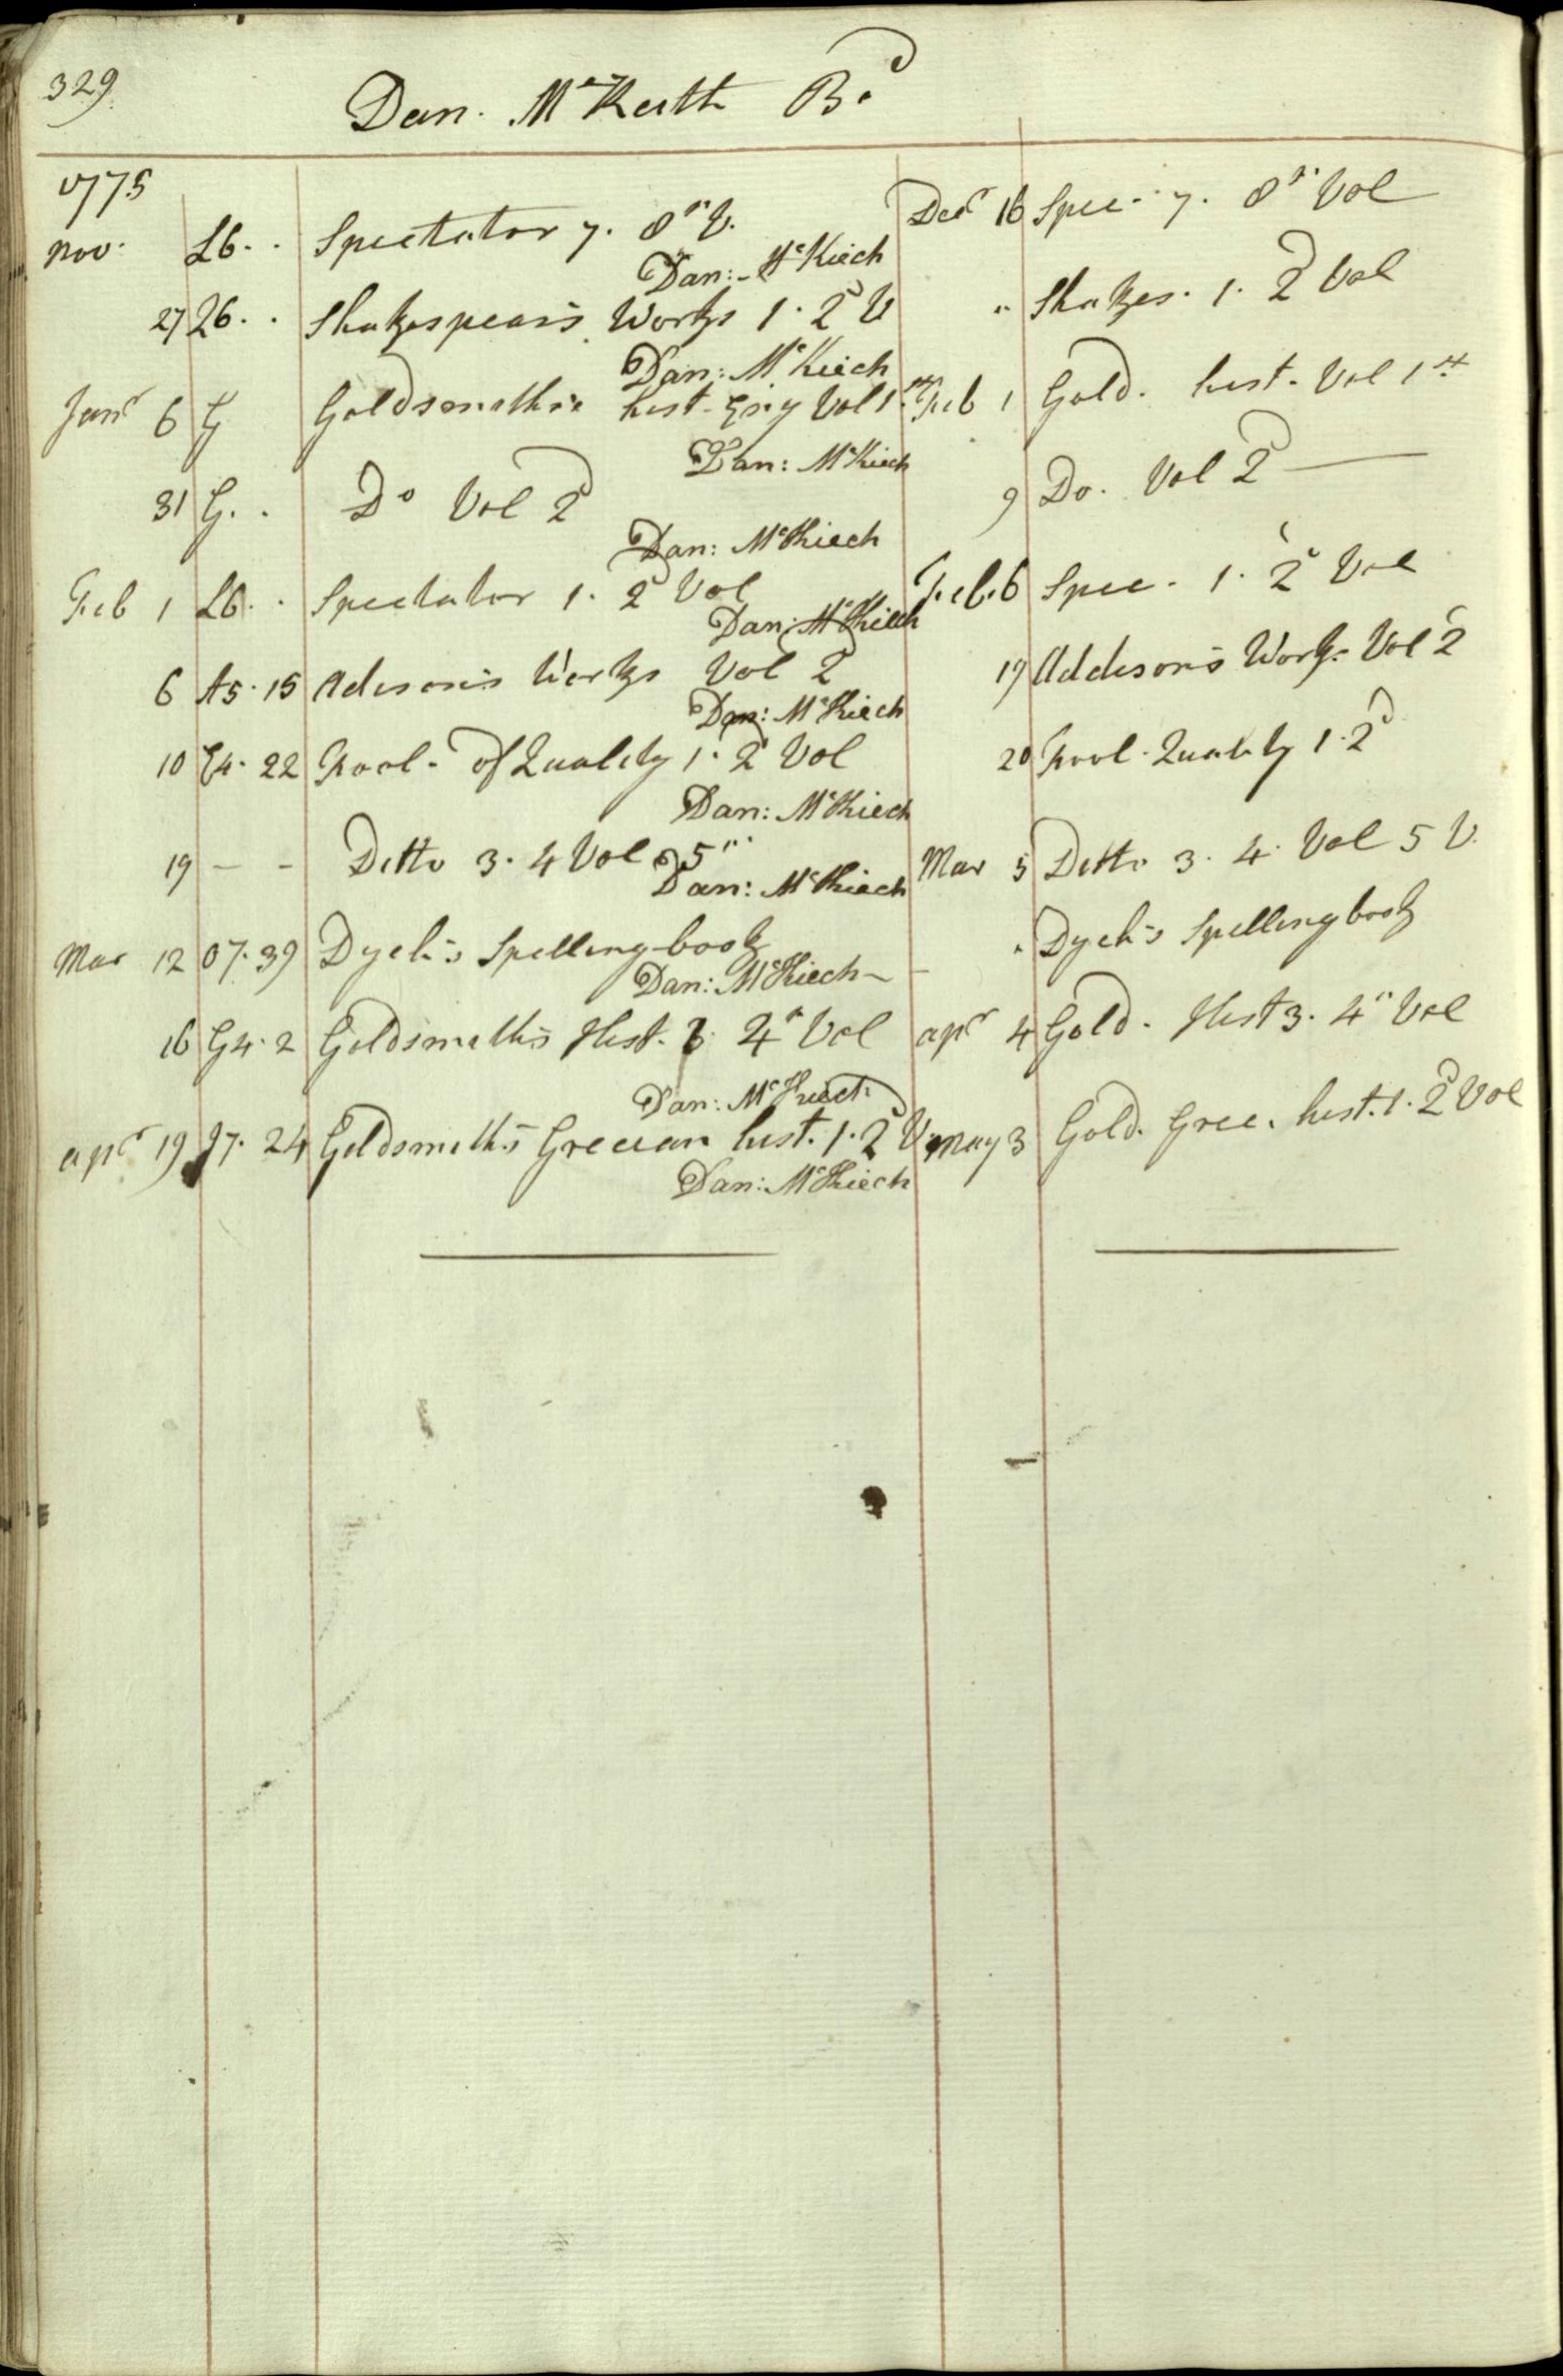 329
Dan. McKeith Bd
1775
Nov. L6. . Spectator 7. 8th V. Decr 16 Spec. 7. 8th Vol
Dan: McKiech
27 26. . Shakespear's Works 1. 2d V " Shakes. 1. 2d Vol
Dan: McKiech
Janr 6 G Goldsmith's hist. Vol 1st Feb 1 Gold. hist. Vol 1st
Dan: McKiech
31 G. . Do Vol 2d 9 Do. Vol 2d
Dan: McKiech
Feb 1 L6. . Spectator 1. 2d Vol Feb. 6 Spec. 1. 2d Vol
Dan: McKiech
6 A5. 15 Adison's Works Vol 2d 19 Addison's Works Vol 2d
Dan: McKiech
10 E4. 22 Fool. of Quality 1. 2d Vol 20 Fool. Quality 1. 2d
Dan: McKiech
19 - - Ditto 3. 4 Vol 5th Mar 5 Ditto 3. 4. Vol 5 V.
Dan: McKiech
Mar 12 O7. 39 Dych's Spelling book " Dych's Spelling book
Dan: McKiech
16 G4. 2 Goldsmith's Hist. 3. 4th Vol apr 4 Gold. Hist 3. 4th Vol
Dan: McKiech
apr 19 J7. 24 Goldsmith's Grecian hist. 1. 2d V. May 3 Gold. Grec. hist. 1. 2d Vol
Dan: McKiech